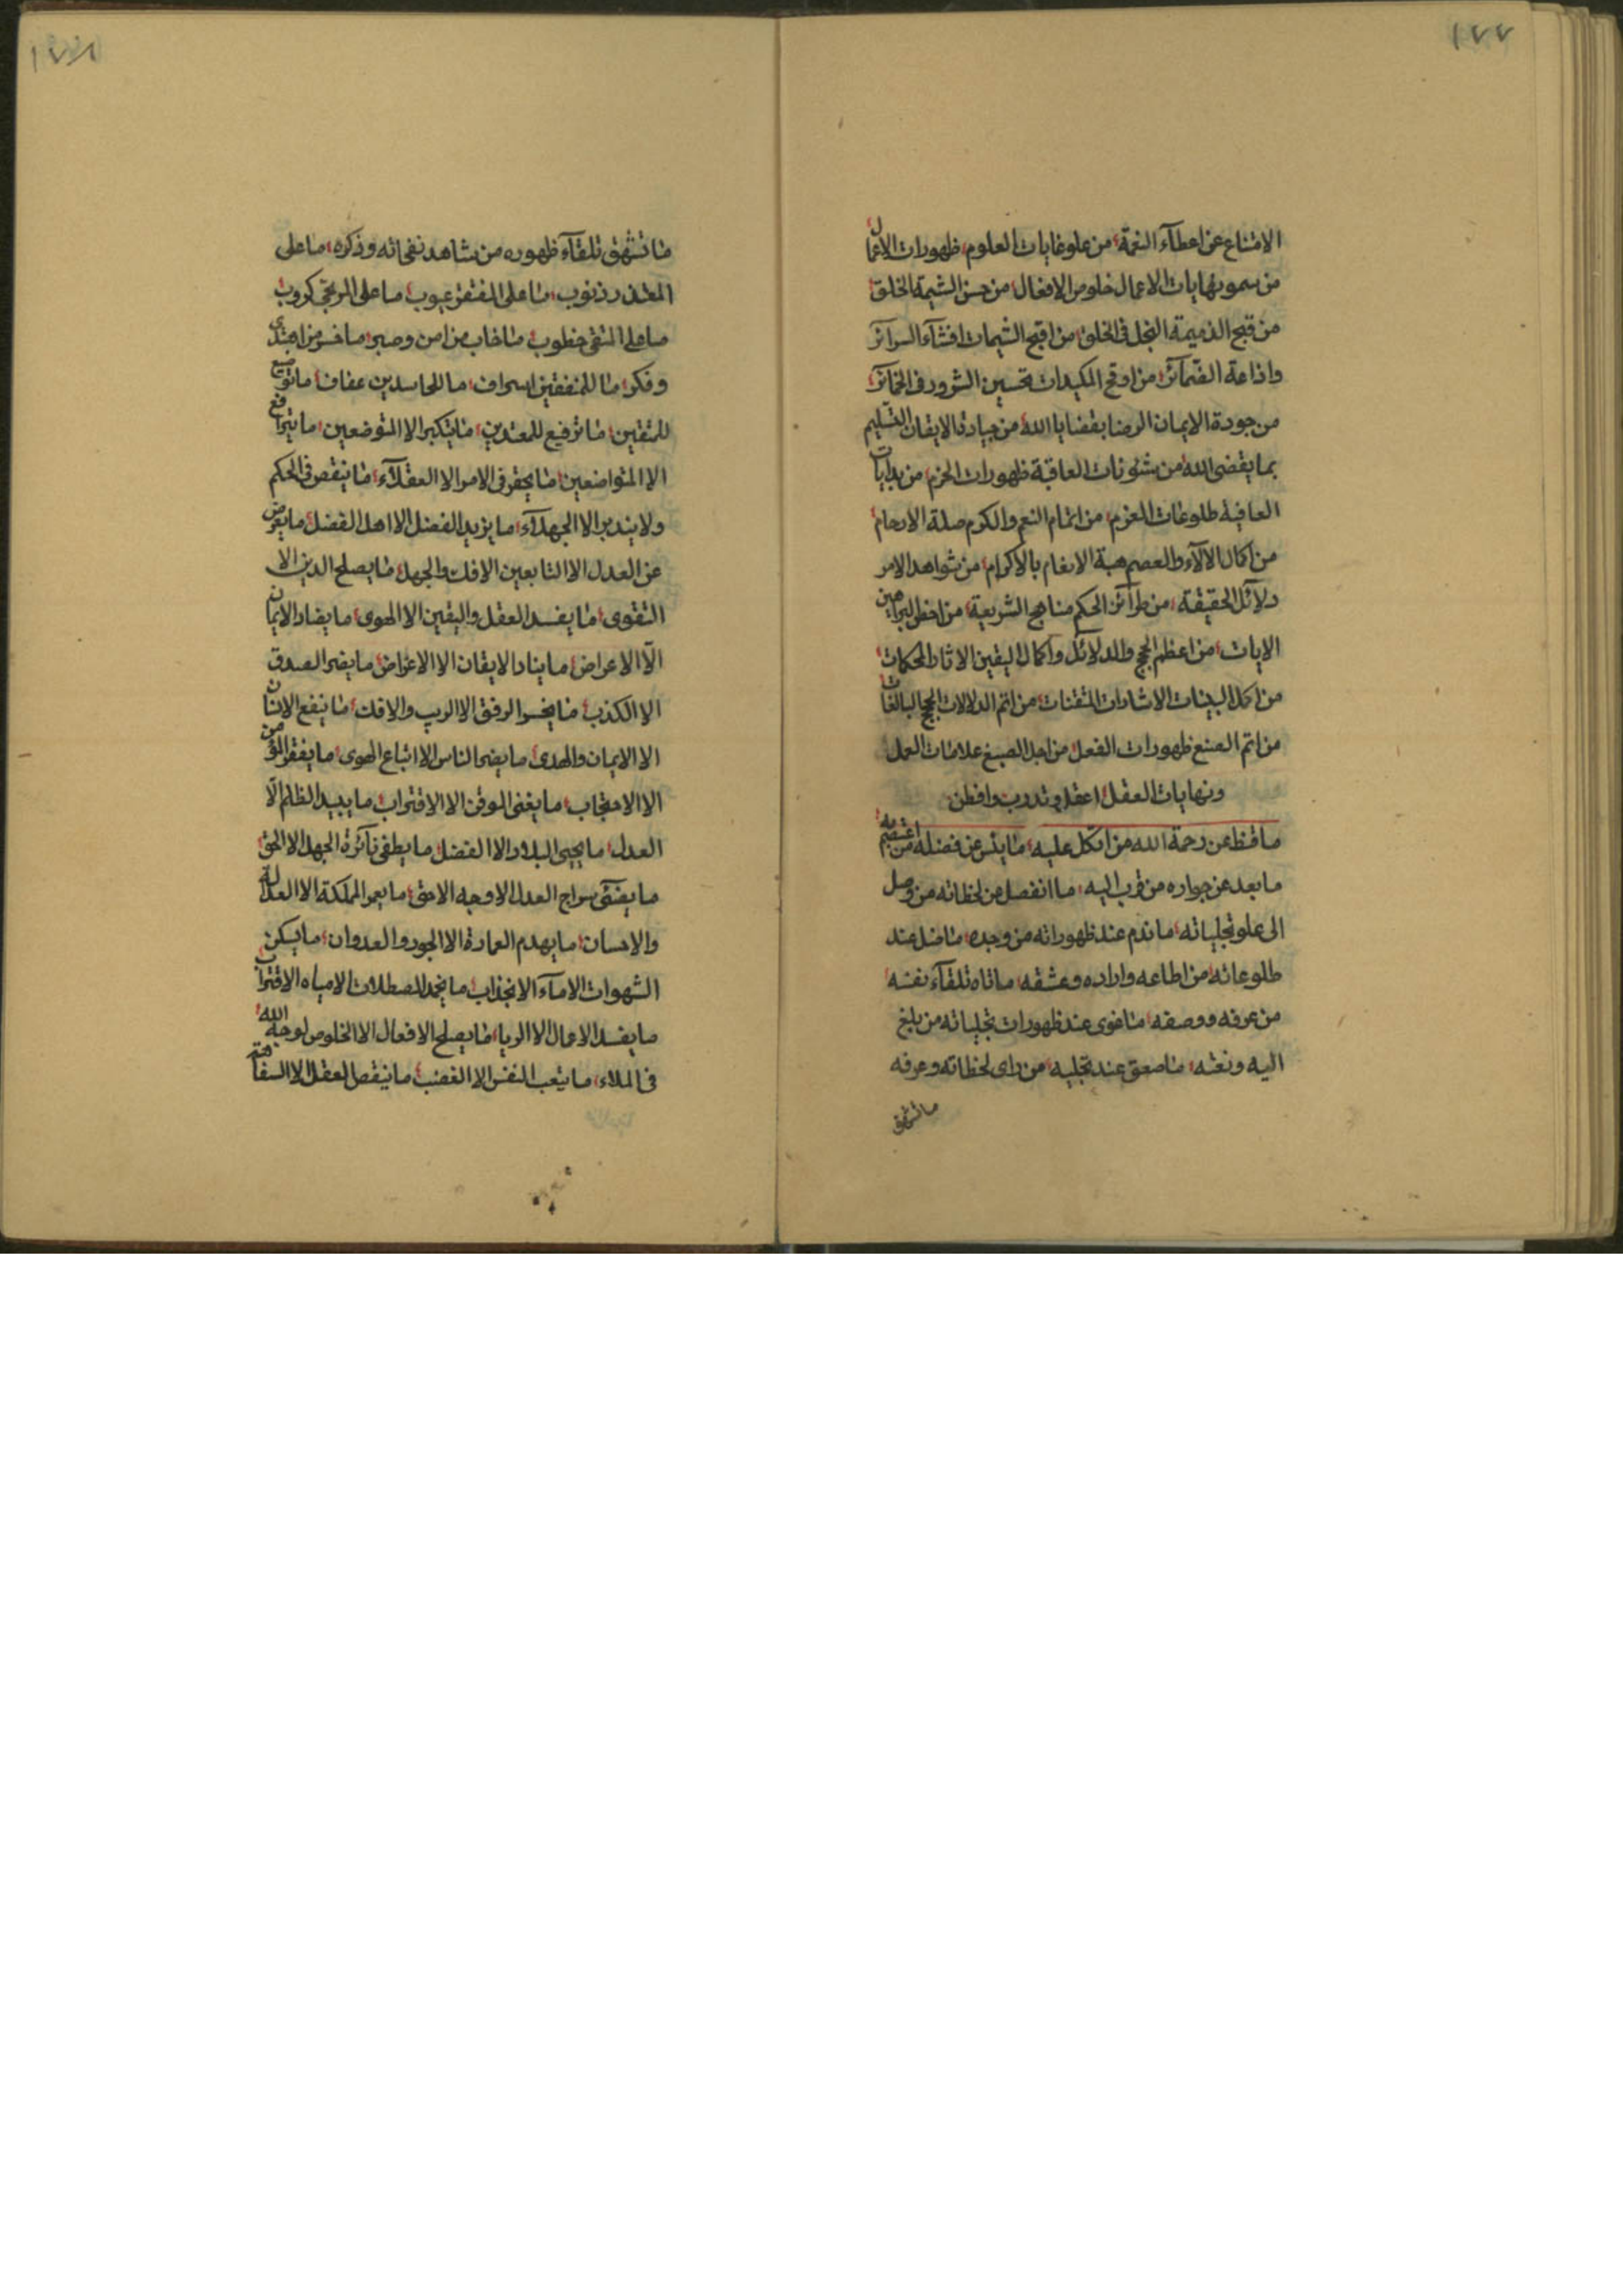 ١٧٧
الامتناع عن اعطآء النعمة من علو غايات العلوم ظهورات الاعمال
من سمو نهايات الاعمال خلوص الافعال من حسن الشيمة الخلق
من قبح الذميمة البخل فى الخلق من اقبح الشيمات افشآء السرآئر
واذاعة الضمآئر من اوقح المكيدات تحسين الشرور فى الخمآئر
من جودة الايمان الرضا بقضايا الله من جيادة الايقان التسليم
بما يقضى الله من شئونات العاقبة ظهورات الحزم من بدايات
العافية طلوعات العزم من اتمام النعم والكرم صلة الارحام
من اكمال الالآء والعصم هبة الانعام بالاكرام من شواهد الامر
دلآئل الحقيقة من طرآئز الحكم مناهج الشريعة من البراهين
الايات من اعظم الحجج والدلآئل واكمال اليقين الاثار المحكمات
من اكمل البينات الاشارات المتقنات من اتم الدلالات الحجج البالغات
من اتم الصنع ظهورات الفعل من اجل الصبغ علامات العمل
ونهايات العقل اعقل وتدرب وافطن
ما قنط عن رحمة الله من اتكل عليه ما يئس عن فضله من اعتصم به
ما بعد عن جواره من قرب اليه ما انفصل عن لحظاته من وصل
الى علو تجلياته ما ندم عند ظهوراته من وجده ما ضل عند
طلوعاته من اطاعه واراده وعشقه ما تاه تلقآء نفسه
من عرفه ووصفه ما غوى عند ظهورات تجلياته من بلغ
اليه ونعته ما صعق عند تجليه من راى لحظاته وعرفه
ما تشهق
١٧٨
ما تشهق تلقآء ظهوره من شاهد نفحاته وذكره ما على
المعتذر ذنوب ما على المفتقر عيوب ما على المرتجى كروب
ما على المتقى خطوب ما خاب من امن وصبر ما خسر من اهتدى
وفكر ما للمنفقين اسراف ما للحاسدين عفاف ما توضيع
للمتقين ما ترفيع للمعتدين ما يتكبر الا المتوضعين ما يترافع
الا المتواضعين ما يحقر فى الامر الا العقلآء ما ينقص فى الحكم
ولا يندبر الا الجهلآء ما يزيد الفضل الا اهل الفضل ما يعرض
عن العدل الا التابعين الافك والجهل ما يصلح الدين الا
التقوى ما يفسد العقل واليقين الا الهوى ما يضاد الايمان
الّا الاعراض ما يناد الايقان الا الاعراض ما يضر الصدق
الا الكذب ما يخسر الرفق الا الريب والافك ما ينفع الانسان
الا الايمان والهدى ما يضر الناس الا اتباع الهوى ما يفقر المؤمن
الا الاحتجاب ما يغنى الموقن الا الاقتراب ما يبيد الظلم الّا
العدل ما يحيى البلاد الا الفضل ما يطفى نآئرة الجهل الا الحق
ما يضئ سراج العدل الا وجه الاحق ما يعمر المملكة الا العدالة
والاحسان ما يهدم العمارة الا الجور والعدوان ما يسكن
الشهوات الا مآء الانجذاب ما يخمد المصطلات الا مياه الاقتراب
ما يفسد الاعمال الا الريا ما يصلح الافعال الا الخلوص لوجه الله
فى الملاء ما يتعب النفس الا الغضب ما ينقص العقل الا السفاهة